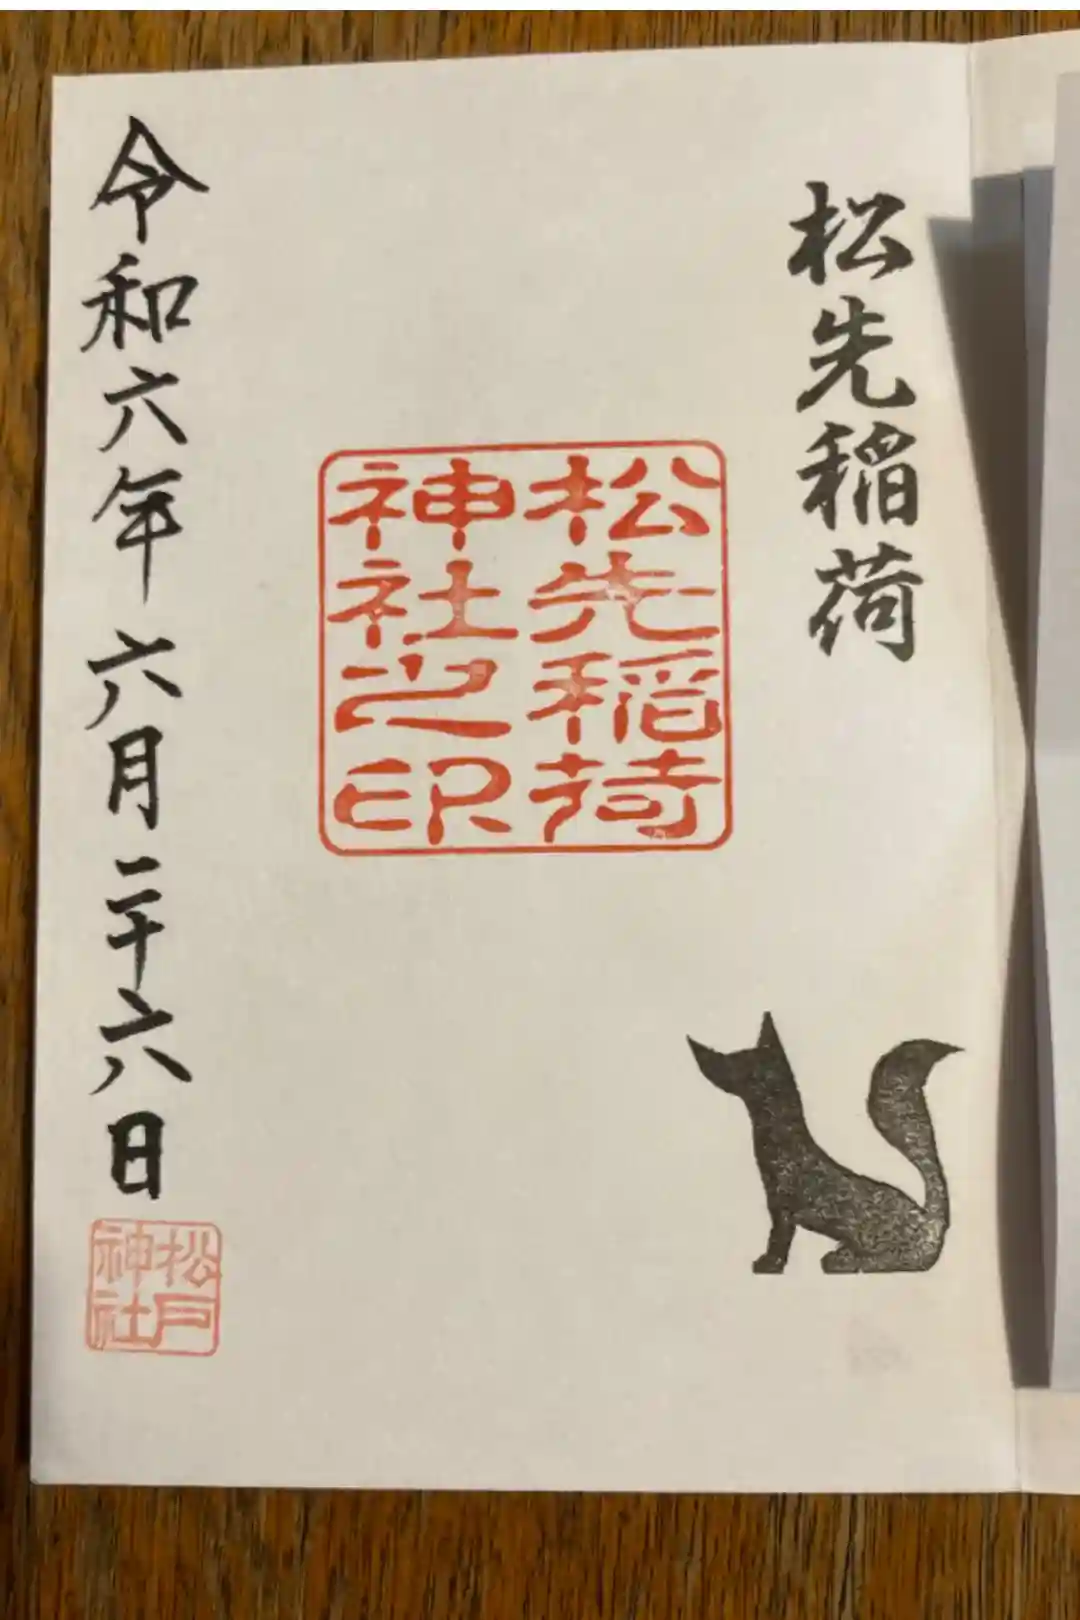 松先稲荷
松先稲荷
神社之印
令和六年六月二十六日
松戸
神社